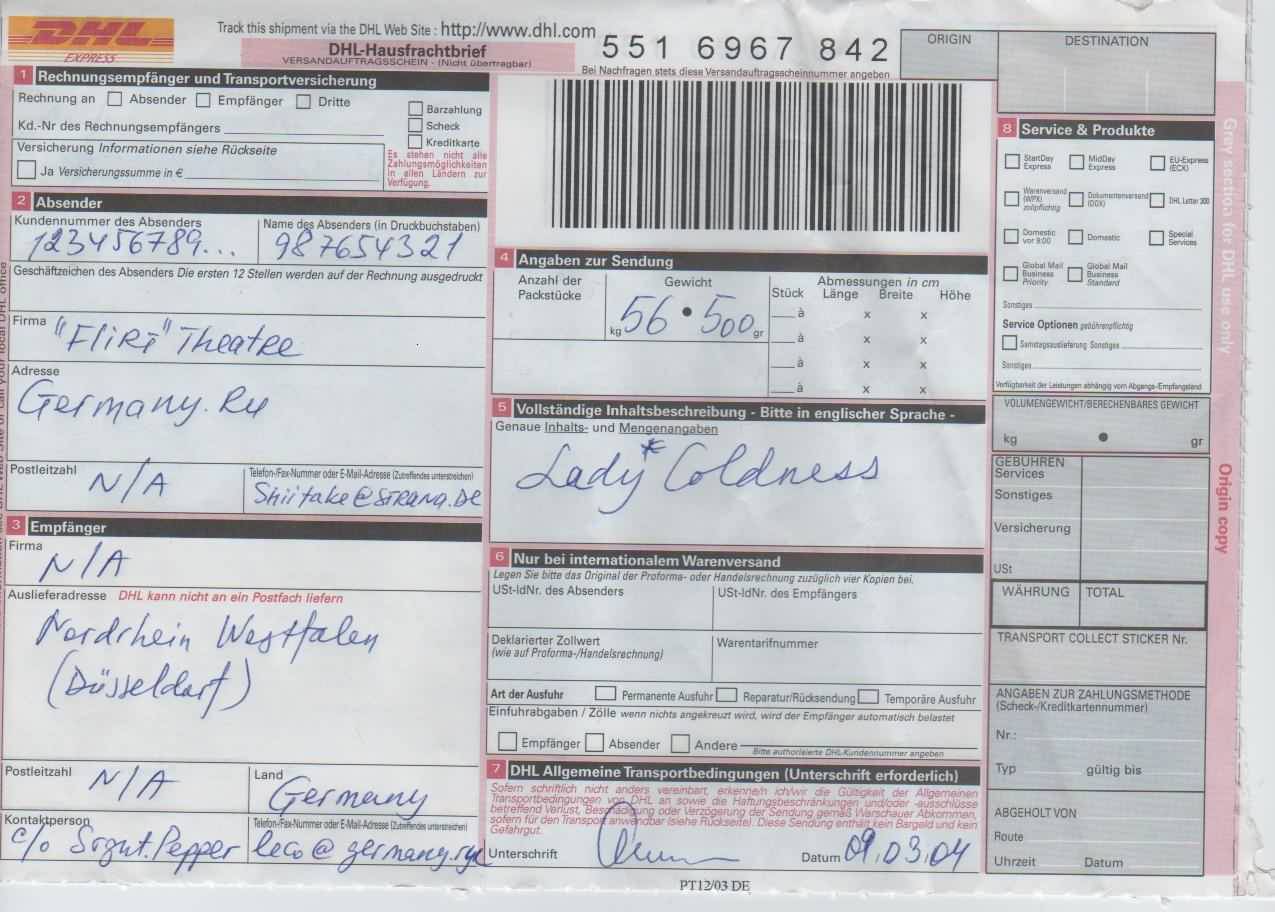 DHL
EXPRESS
Track this shipment via the DHL Web Site : http://www.dhl.com
DHL-Hausfrachtbrief
VERSANDAUFTRAGSSCHEIN - (Nicht übertragbar)
551 6967 842
Bei Nachfragen stets diese Versandauftragsscheinnummer angeben
ORIGIN
DESTINATION
1 Rechnungsempfänger und Transportversicherung
Rechnung an Absender Empfänger Dritte
Barzahlung
Scheck
Kreditkarte
Kd.-Nr des Rechnungsempfängers
Es stehen nicht alle
Zahlungsmöglichkeiten
in allen Ländern zur
Verfügung.
Versicherung Informationen siehe Rückseite
Ja Versicherungssumme in €
2 Absender
Kundennummer des Absenders
123456789...
Name des Absenders (in Druckbuchstaben)
987654321
Geschäftzeichen des Absenders Die ersten 12 Stellen werden auf der Rechnung ausgedruckt
Firma
"Flirt" Theatre
Adresse
Germany.Ru
Postleitzahl
N/A
Telefon-/Fax-Nummer oder E-Mail-Adresse (Zutreffendes unterstreichen)
Shiitake@strana.de
3 Empfänger
Firma
N/A
Auslieferadresse DHL kann nicht an ein Postfach liefern
Nordrhein Westfalen
(Düsseldorf)
Postleitzahl
N/A
Land
Germany
Kontaktperson
c/o Srgnt. Pepper
Telefon-/Fax-Nummer oder E-Mail-Adresse (Zutreffendes unterstreichen)
leco@germany.ru
4 Angaben zur Sendung
Anzahl der
Packstücke
Gewicht
kg 56 • 500 gr
Abmessungen in cm
Stück Länge Breite Höhe
à x x
à x x
à x x
à x x
5 Vollständige Inhaltsbeschreibung - Bitte in englischer Sprache -
Genaue Inhalts- und Mengenangaben
Lady * Coldness
6 Nur bei internationalem Warenversand
Legen Sie bitte das Original der Proforma- oder Handelsrechnung zuzüglich vier Kopien bei.
USt-IdNr. des Absenders
USt-IdNr. des Empfängers
Deklarierter Zollwert
(wie auf Proforma-/Handelsrechnung)
Warentarifnummer
Art der Ausfuhr Permanente Ausfuhr Reparatur/Rücksendung Temporäre Ausfuhr
Einfuhrabgaben / Zölle wenn nichts angekreuzt wird, wird der Empfänger automatisch belastet
Empfänger Absender Andere
Bitte authorisierte DHL-Kundennummer angeben
7 DHL Allgemeine Transportbedingungen (Unterschrift erforderlich)
Sofern schriftlich nicht anders vereinbart, erkenne/n ich/wir die Gültigkeit der Allgemeinen
Transportbedingungen von DHL an sowie die Haftungsbeschränkungen und/oder -ausschlüsse
betreffend Verlust, Beschädigung oder Verzögerung der Sendung gemäß Warschauer Abkommen,
sofern für den Transport anwendbar (siehe Rückseite). Diese Sendung enthält kein Bargeld und kein
Gefahrgut.
Unterschrift
Datum 09.03.04
PT12/03 DE
8 Service & Produkte
StartDay
Express
MidDay
Express
EU-Express
(ECX)
Warenversand
(WPX)
zollpflichtig
Dokumentenversand
(DOX)
DHL Letter 300
Domestic
vor 9:00
Domestic
Special
Services
Global Mail
Business
Priority
Global Mail
Business
Standard
Sonstiges
Service Optionen gebührenpflichtig
Samstagsauslieferung Sonstiges
Sonstiges
Verfügbarkeit der Leistungen abhängig vom Abgangs-/Empfangsland
VOLUMENGEWICHT/BERECHENBARES GEWICHT
kg • gr
GEBÜHREN
Services
Sonstiges
Versicherung
USt
WÄHRUNG TOTAL
TRANSPORT COLLECT STICKER Nr.
ANGABEN ZUR ZAHLUNGSMETHODE
(Scheck-/Kreditkartennummer)
Nr.:
Typ gültig bis
ABGEHOLT VON
Route
Uhrzeit Datum
Grey section for DHL use only
Origin copy